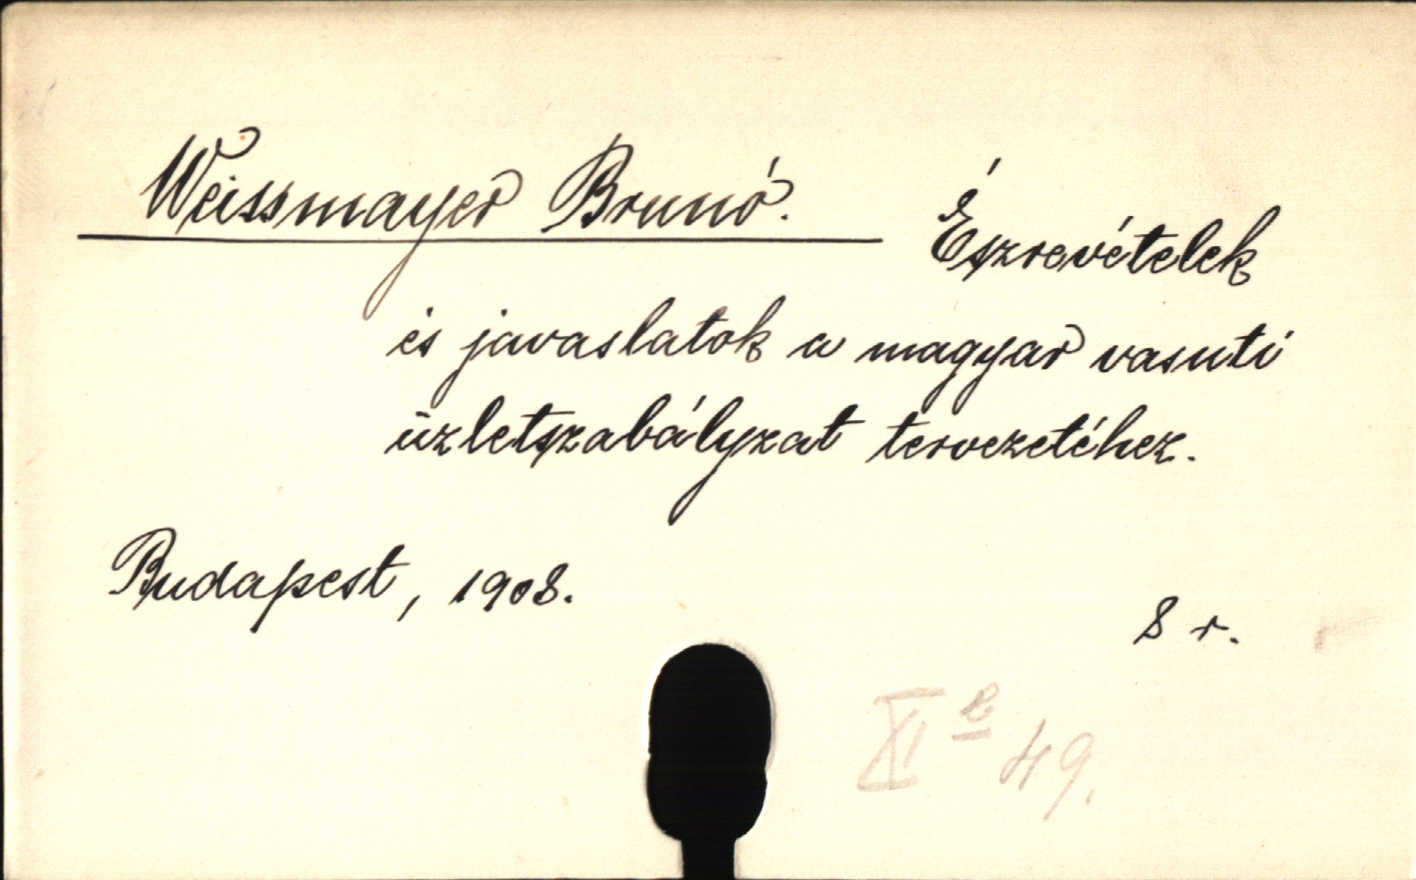 Weissmayer Brunó. Észrevételek
és javaslatok a magyar vasuti
üzletszabályzat tervezetéhez.
Budapest, 1908.
8 r.
XI e 49.